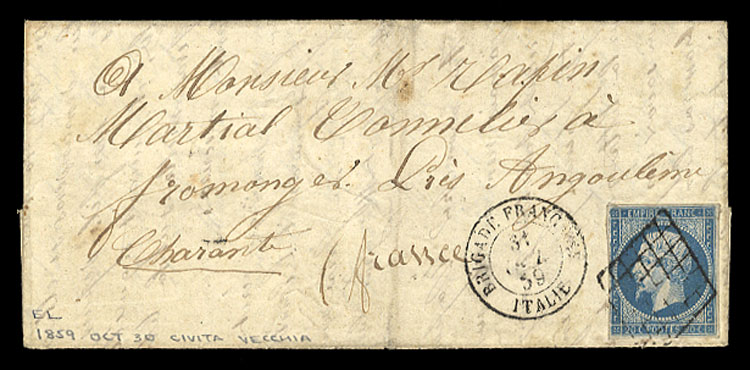 A Monsieur Mr Rapin
Martial Tonnelier à
fromonger. Près Angoulême
Charante
(france
BRIGADE FRANÇAISE
31
59
ITALIE
EMPIRE FRANC
20 C POSTES 20 C
EL
1859 OCT 30 CIVITA VECCHIA